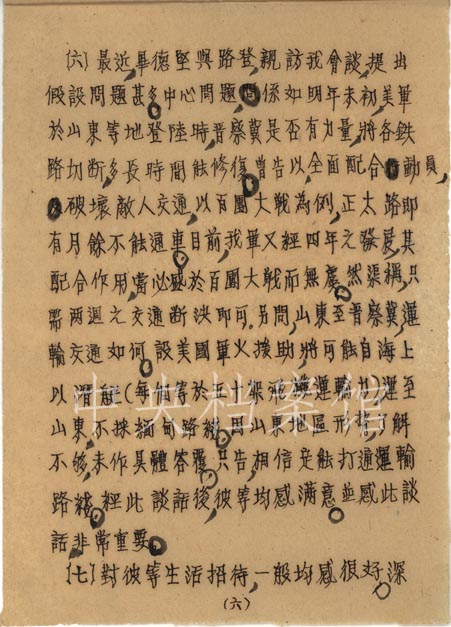 (六)最近,畢德堅與路登,親訪我會談,提出
假設問題甚多,中心問題,係如明年末初,美軍
於山東等地登陸時,晋察冀是否有力量,將各鉄
路切断,多長時間能修復,曾告以全面配合動員,
破壞敵人交通,以百團大戰為例,正太路即
有月餘不能通車。目前,我軍又經四年之發展,其
配合作用,當必盛於百團大戰而無虞。然渠稱,只
需两週之交通断決即可。另問,山東至晋察冀運
輸交通如何。設美國軍火援助,將可能自海上
以潛艇(每個等於五十架飛機運輸力)運至
山東,不採緬甸路綫。因山東地區形情了解
不够,未作具體答覆,只告,相信定能打通運輸
路綫。經此談話後,彼等均感满意,並感此談
話,非常重要。
[七]對彼等生活招待,一般均感很好。深
(六)
中央档案馆